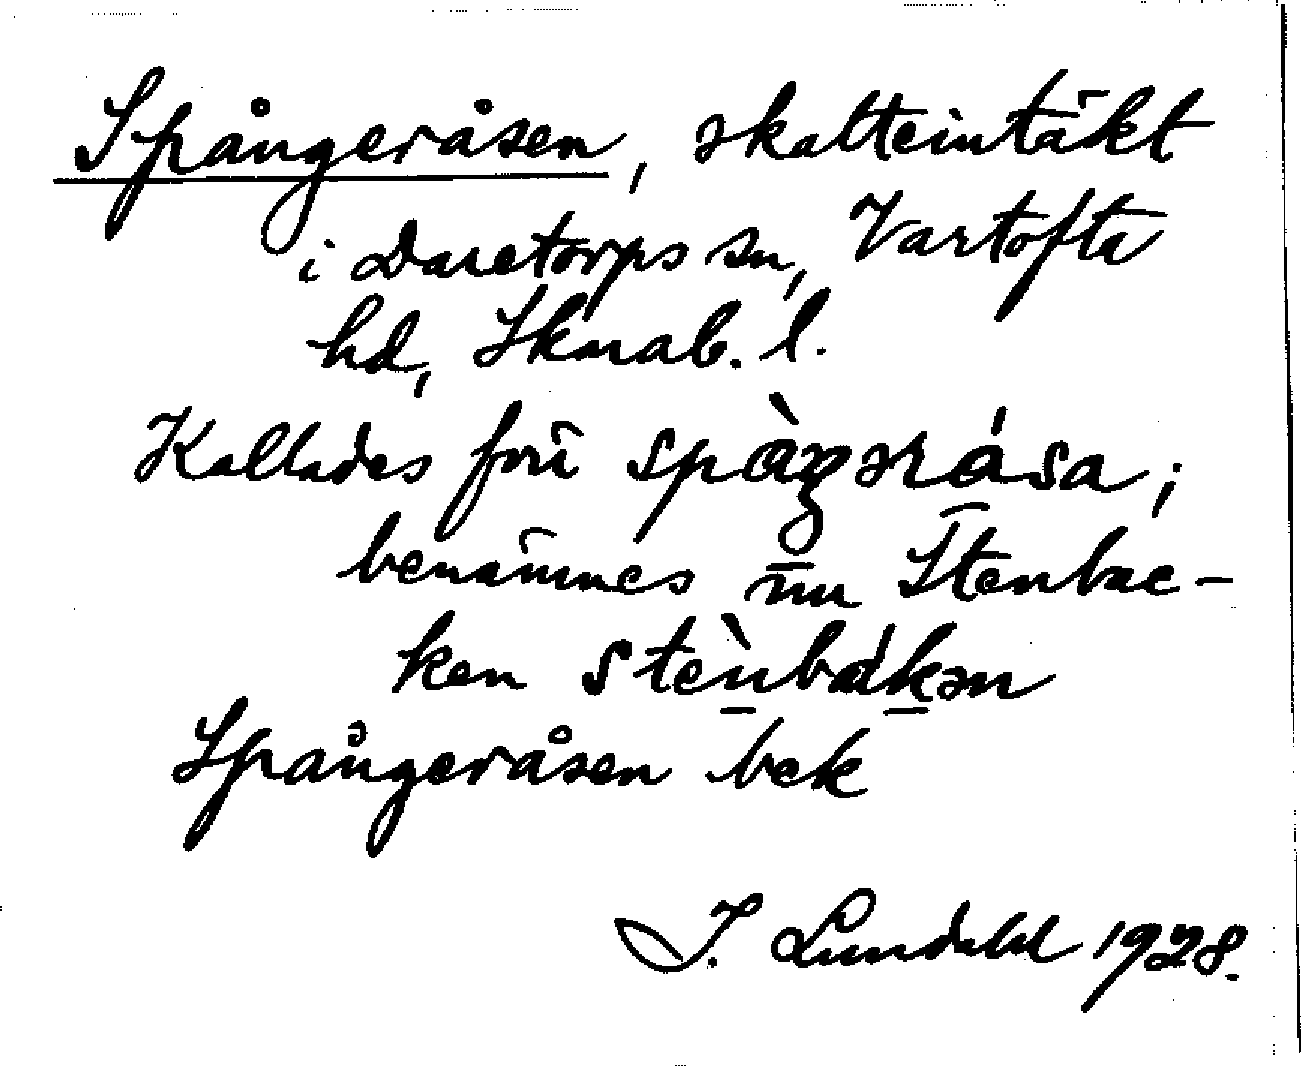 Spångeråsen, skatteintäkt
i Daretorps sn, Vartofta
hd, Skarab. l.
Kallades förr spàŋərása;
benämnes nu Stenbac-
ken stènbákən
Spångeråsen bek
I. Lundahl 1928.